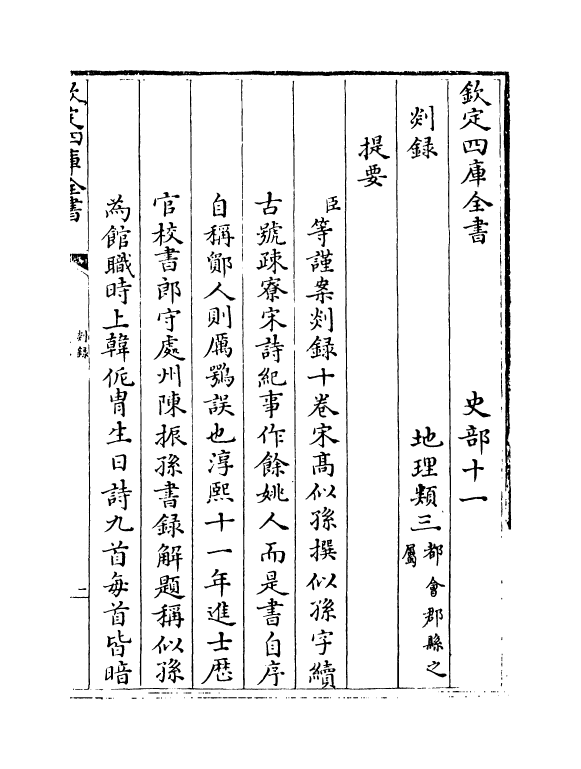 欽定四庫全書　史部十一
剡録　地理類三都會郡縣之屬
提要
臣等謹案剡録十卷宋髙似孫撰似孫字續
古號疎寮宋詩紀事作餘姚人而是書自序
自稱鄞人則厲鶚誤也淳熙十一年進士歴
官校書郎守處州陳振孫書録解題稱似孫
為館職時上韓侂胄生日詩九首每首皆暗
欽定四庫全書
剡録
二